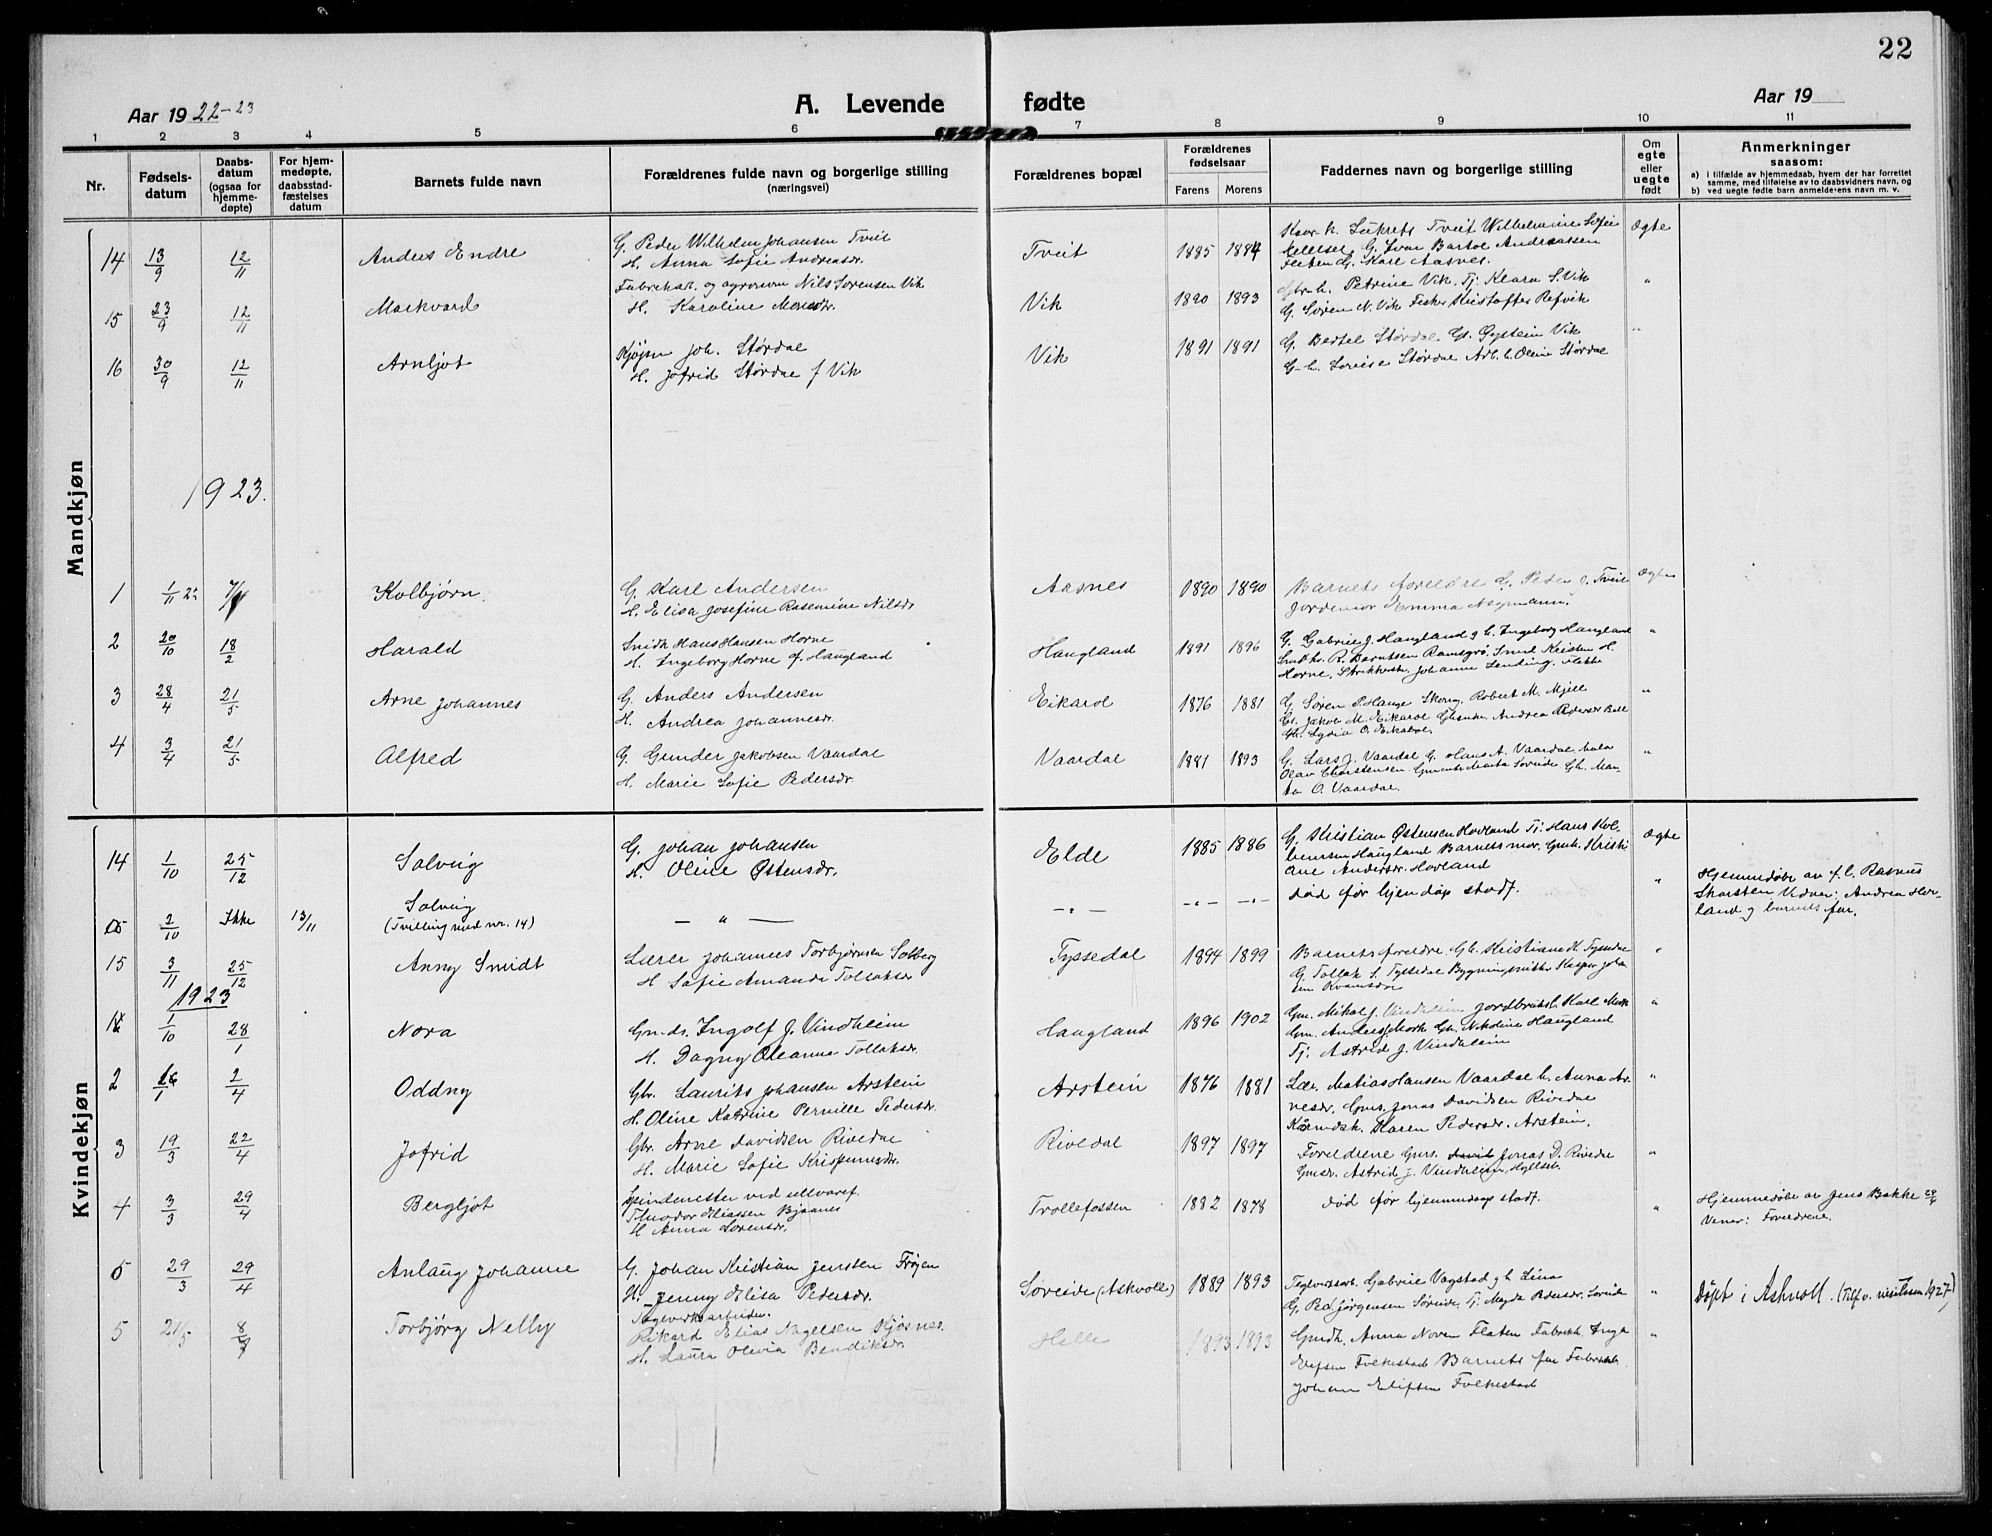 22
Aar 1922-23
A. Levende fødte
Aar 19
1 2 3 4 5 6 7 8 9 10 11
Nr.
Fødsels-
datum
Daabs-
datum
(ogsaa for
hjemme-
døpte)
For hjem-
medøpte,
daabsstad-
fæstelses
datum
Barnets fulde navn
Forældrenes fulde navn og borgerlige stilling
(næringsvei)
Forældrenes bopæl
Forældrenes
fødselsaar
Farens Morens
Faddernes navn og borgerlige stilling
Om
egte
eller
uegte
født
Anmerkninger
saasom:
a) i tilfælde av hjemmedaab, hvem der har forrettet
samme, med tilføielse av to daabsvidners navn, og
b) ved uegte fødte barn anmelderens navn m. v.
Mandkjøn
14 13/9 12/11 Anders Endre
G. Peder Wilhelm Johansen Tveit
H. Anna Sofie Andreasdr.
Tveit 1885 1884
Tveit Wilhelmine Sofie
G. Ivar Bartol Andreassen
G. Karl Aasnes.
Ægte
15 23/9 12/11 Markvard
Fabrikar. og agronom Nils Sørensen Vik
H. Karoline Monsdr.
Vik 1890 1893
Petrine Vik. Tj. Klara S. Vik
G. Søren N. Vik Fisker Kristoffer Refvik
"
16 30/9 12/11 Arnljot
Joh. Størdal
H. Jofrid Størdal f Vik
Vik 1891 1891
G. Bertel Størdal. Gs. Øystein Vik
G-h. Lovise Størdal Arb. h. Oline Størdal
"
1923.
1 1/11 22 7/1 Kolbjørn.
G. Karl Andersen
H. Elisa Josefine Rasmine Nilsdr
Aasnes 1890 1890
Barnets foreldre G. Peder J. Tveit
Jordemor Emma Aspmann.
Ægte
2 20/10 18/2 Harald
Smidh Hans Hansen Horne
H. Ingeborg Horne f. Haugland
Haugland 1891 1896
G. Gabriel J. Haugland g h. Ingeborg Haugland
R. Berntsen Ramsgrø. Smed Kristen H.
Horne, Johanne Flekke
"
3 28/4 21/5 Arne Johannes
G. Anders Andersen
H. Andrea Johannesdr.
Eikarol 1876 1881
G. Søren P. Hauge Skong, Robert M. Mjell
G. Jakob M. Eikarol Andrea Pedersdr
Gh. Lydia O. Eikarol.
"
4 3/4 21/5 Alfred
G. Gunder Jakobsen Vaardal
H. Marie Sofie Pedersdr.
Vaardal 1881 1893
G. Lars J. Vaardal G. Hans A. Vaardal
Olav Christensen Marta Søreide Gh. Mar-
ta O. Vaardal.
"
Kvindekjøn
14 1/10 25/12 Solveig
G. Johan Johansen
H. Oline Østensdr.
Elde 1885 1886
G. Kristian Østensen Hovland Tj: Hans Kol-
bensen Haugland Barnets mor. Gmh. Kristi
ane Andersdr. Hovland
Ægte
2/10 Ikke 13/11 Solveig
(Tvilling med nr. 14)
— " —
— " — —"— —"—
død før hjem døp stadf.
"
Hjemmedøbt av f. l. Rasmus
Skarsten Vidner: Andrea Hov-
land og barnets far.
15 3/11 25/12 Anny Smidt
Lærer Johannes Torbjørnsen Solberg
H Sofie Amanda Tollaksdr
Tyssedal 1894 1899
Barnets foreldre. Gh. Kristiane H. Tyssedal
G. Tollak S. Tyssedal Kasper Joha
sen Kvamsdal
"
1923
1 1/10 28/1 Nora
Gm.ds. Ingolf J. Vindheim
H. Dagny Oleanna Tollaksdr.
Haugland 1896 1902
Gm. Mikal J. Vindheim. Karl Mork
Gm. Anders J Mork Gh. Nikoline Haugland
Tj: Astrid J. Vindheim
"
2 16/1 2/4 Oddny
Gbr. Laurits Johansen Arstein
H. Oline Katrine Pernille Pedersdr.
Arstein 1876 1881
Lær. Matias Hansen Vaardal h. Anna Ar-
nesdr. Gms. Jonas Davidsen Rivedal
Karen Pedersdr. Arstein.
"
3 19/3 22/4 Jofrid
Gbr. Arne Davidsen Rivedal
H. Marie Sofie
Rivedal 1897 1897
Foreldrene Gms. Jonas D. Rivedal
Gmdr. Astrid J. Vindheim, Hyllest.
"
4 3/3 29/4 Bergljot
Spindemester ved ulvaref.
Teodor Eliassen Bjaanes
H Anna Sørensdr.
Trollefossen 1882 1878
død før hjemmedaap stadf.
"
Hjemmedøbt av Jens Bakke
Vidner: Foreldrene.
5 29/3 29/4 Anlaug Johanne
G. Johan Kristian Jensen Frøyen
H. Jenny Elisa Pedersdr.
Søreide (Askvoll) 1889 1893
Teglverksarb. Gabriel Vagstad g h. Lina
G. Ped Jørgensen Søreide, Tj. Magda Pedersdr. Søreide
"
Døpt i Askvoll. (Tilf. v. visitasen 1927)
5 21/5 8/7 Torbjørg Nelly
Teglverksarbeider.
Rikard Elias Nagelsen Kjøsnes.
H. Laura Olivia Bendiksdr.
Helle 1893 1893
Gmdh. Anna Noven Flaten Fabrikh. Inga
Elefsen Folkestad Barnets far Fabrikarb.
Johan Elifsen Folkestad
"